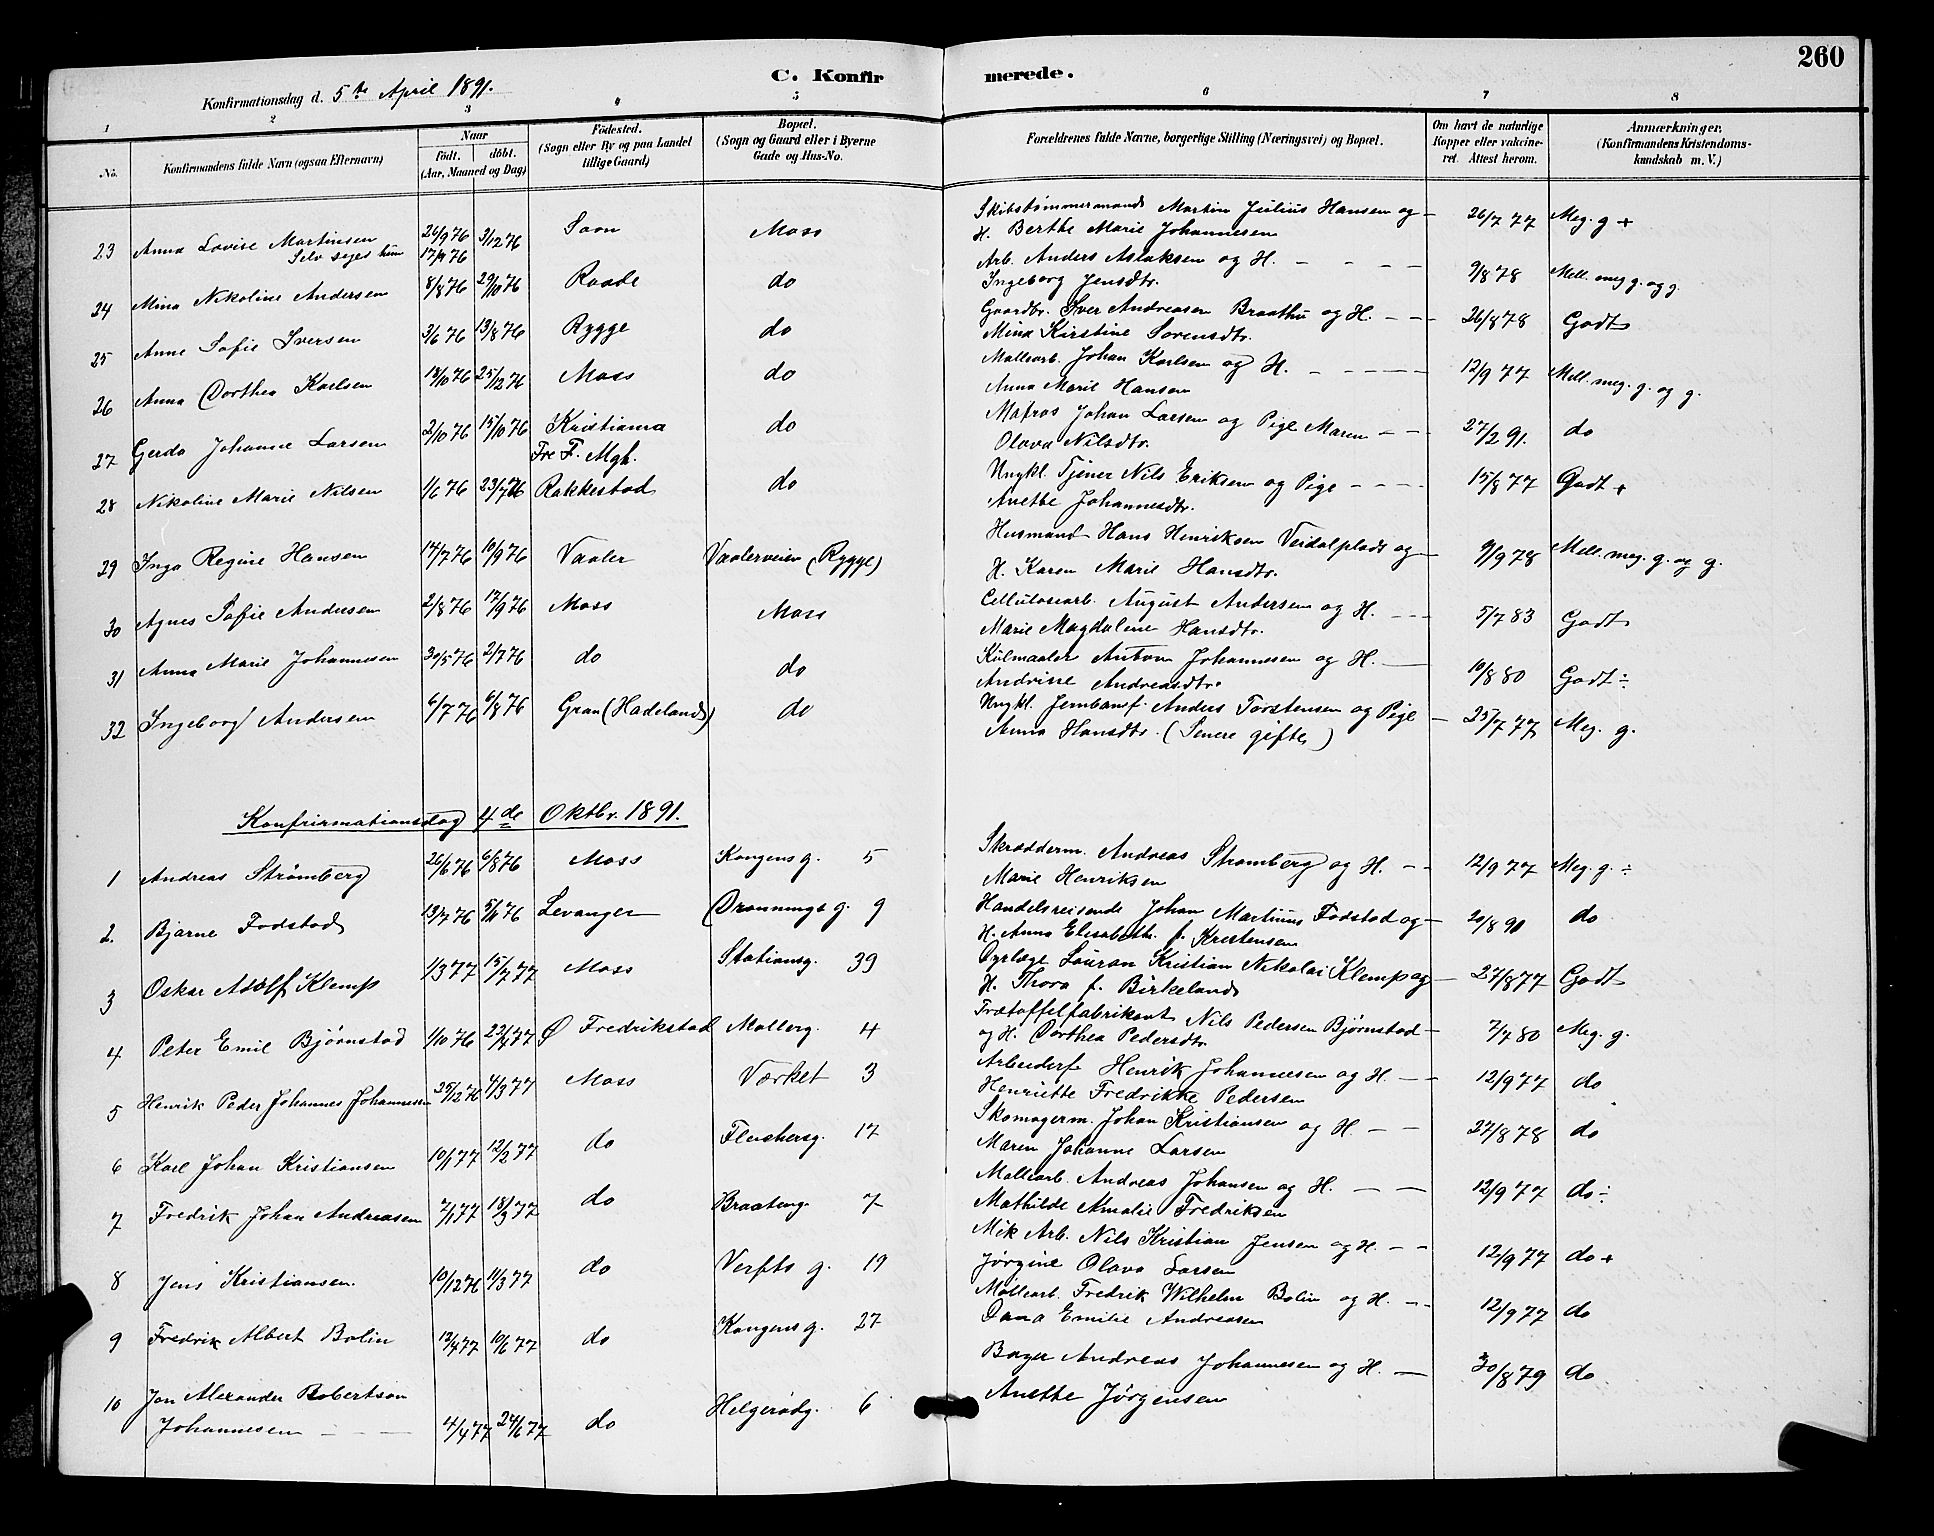 260
C. Konfirmerede.
Konfirmationsdag d. 5te April 1891.
1 2 3 4 5 6 7 8
No. Konfirmandens fulde Navn (ogsaa Efternavn) Naar født. døbt. (Aar, Maaned og Dag) Fødested. (Sogn eller By og paa Landet tillige Gaard) Bopæl. (Sogn og Gaard eller i Byerne Gade og Hus-No. Forældrenes fulde Navne, borgerlige Stilling (Næringsvei) og Bopæl. Om havt de naturlige Kopper eller vakcineret. Attest herom. Anmærkninger. (Konfirmandens Kristendomskundskab m. V.)
23 Anna Lovise Martinsen 24/9 76 3/12 76 Soon Moss Skibstømmermand Martin Julius Hansen og 26/7 77 Meg. g +
Selv siges hun 17/9 76 H. Berthe Marie Johannesen
24 Mina Nikoline Andersen 8/8 76 29/10 76 Raade do Arb. Anders Aslaksen og H. 9/8 78 Mell. meg g. og g.
Ingeborg Jensdtr.
25 Anne Sofie Iversen 3/6 76 13/8 76 Rygge do Gaardbr. Iver Andreasen Braathe og H. 26/8 78 Godt
Mina Kirstine Sørensdtr.
26 Anna Dorthea Karlsen 18/10 76 25/12 76 Moss do Møllearb. Johan Karlsen og H. 12/9 77 Mell. meg. g. og g.
Anna Marie Hansen
27 Gerda Johanne Larsen 2/10 76 15/10 76 Kristiania do Matros Johan Larsen og Pige Maren 27/2 91. do
Fre F. Mgh. Olava Nilsdtr.
28 Nikoline Marie Nilsen 1/6 76 23/7 76 Rakkestad do Ungkl. Tjener Nils Eriksen og Pige 15/8 77 Godt +
Anethe Johannesdtr.
29 Inga Regine Hansen 14/7 76 10/9 76 Vaaler Vaalerveien (Rygge) Husmand Hans Henriksen Veidalplads og 9/9 78 Mell. meg. g. og g.
H. Karen Marie Hansdtr.
30 Agnes Sofie Andersen 2/8 76 17/9 76 Moss Moss Cellulosearb. August Andersen og H. 5/7 83 Godt
Marie Magdalene Hansdtr.
31 Anna Marie Johannesen 30/5 76 2/7 76 do do Kulmaaler Anton Johannesen og H. 10/8 80 Godt ÷
Andrine Andreasdtr.
32 Ingeborg Andersen 6/7 76 6/8 76 Gran (Hadeland) do Ungkl. Jernbanf. Anders Torstensen og Pige 25/7 77 Meg. g.
Anna Hansdtr. (Senere gifte)
Konfirmationsdag 4de Oktbr. 1891.
1 Andreas Strømberg 26/6 76 6/8 76 Moss Kongensg. 5 Skrædderm. Andreas Strømberg og H. 12/9 77 Meg. g. ÷
Marie Henriksen
2. Bjarne Fodstad 13/7 76 5/11 76 Levanger Dronningsg. 9 Handelsreisende Johan Martinus Fodstad og 20/8 90 do
H. Anna Elisabeth f. Krestensen
3 Oskar Adolf Klemp 1/3 77 15/7 77 Moss Stationsg. 39 Dyrlæge Lauran Kristian Nikolai Klemp og 27/8 77 Godt
H. Thora f. Birkeland
4 Peter Emil Bjørnstad 1/10 76 22/4 77 Ø Fredrikstad Møllerg. 4 Trætøffelfabrikant Nils Pedersen Bjørnstad 7/7 80 Meg. g.
og H. Dorthea Pedersdtr.
5 Henrik Peder Johannes Johannesen 25/12 76 4/3 77 Moss Værket 3 Arbeiderf. Henrik Johannesen og H. 12/9 77 do
Henriette Fredrikke Pedersen
6 Karl Johan Kristiansen 10/1 77 12/2 77 do Fleschersg. 17 Skomagerm. Johan Kristiansen og H. 27/8 78 do
Maren Johanne Larsen
7 Fredrik Johan Andreasen 7/1 77 18/3 77 do Braateng. 7 Møllearb. Andreas Johansen og H. 12/9 77 do ÷
Mathilde Amalie Fredriksen
8 Jens Kristiansen 10/12 76 11/3 77 do Verfts g. 19 Mek Arb. Nils Kristian Jensen og H. 12/9 77 do +
Jørgine Olava Larsen
9 Fredrik Albert Bolin 12/4 77 10/6 77 do Kongensg. 27 Møllearb. Fredrik Wilhelm Bolin og H. 12/9 77 do
Dana Emilie Andreasen
10 Jon Alexander Robertson Bager Andreas Johannesen og H. 30/8 79 do
Johannesen 4/4 77 24/6 77 do Helgerødg. 6 Anethe Jørgensen